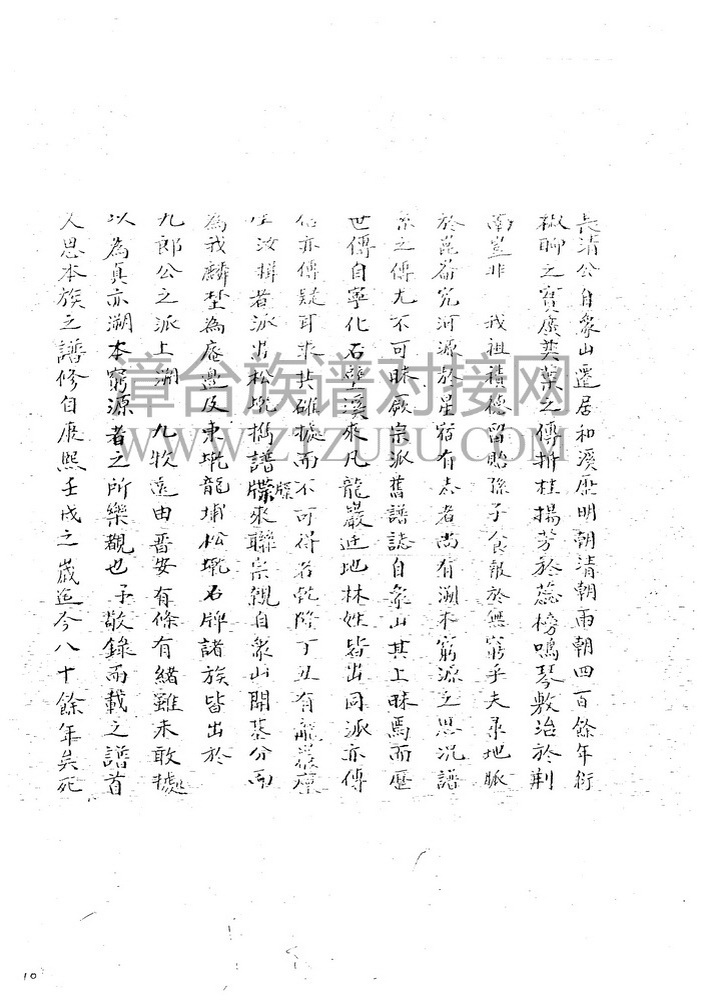 長清公自象山遷居和溪歷明朝清朝兩朝四百餘年衍
椒聊之實廣奕葉之傳折桂揚芳於蕊榜鳴琴敷治於荆
南豈非 我祖積德留貽孫子食報於無窮乎夫尋地脈
於崑崙窮河源於星宿有志者尚有溯本窮源之思況譜
系之傳尤不可昧厥宗派舊譜誌自象山其上昧焉而歷
世傳自寧化石壁溪來凡龍巖近地林姓皆出同派亦傳
亦傳疑耳求其確據而不可得者乾隆丁丑有龍巖
汝揖者派出松坑擕譜牒來聯宗親自象山開基分而
牒
為我麟埜為庵邊及東坑龍埔松坑石牌諸族皆出於
九郎公之派上溯 九牧遠由晋安有條有緒雖未敢據
以為真亦溯本窮源者之所樂觀也予敬錄而載之譜首
又思本族之譜修自康熙壬戌之歲迄今八十餘年矣死
漳台族谱对接网
WWW.ZTZUPU.COM
10